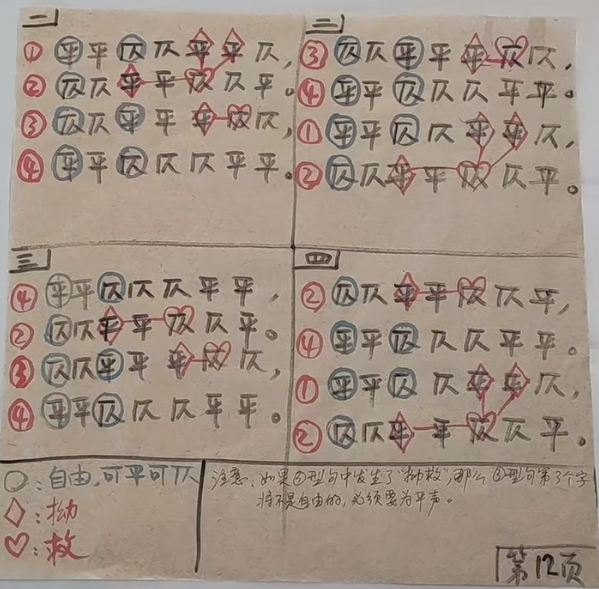 一
① 平平仄仄平平仄，
② 仄仄平平仄仄平。
③ 仄仄平平平仄仄，
④ 平平仄仄仄平平。
二
③ 仄仄平平平仄仄，
④ 平平仄仄仄平平。
① 平平仄仄平平仄，
② 仄仄平平仄仄平。
三
④ 平平仄仄仄平平，
② 仄仄平平仄仄平。
③ 仄仄平平平仄仄，
④ 平平仄仄仄平平。
四
② 仄仄平平仄仄平，
④ 平平仄仄仄平平。
① 平平仄仄平平仄，
② 仄仄平平仄仄平。
○：自由，可平可仄
◇：拗
♡：救
注意：如果③型句中发生了“拗救”，那么③型句第3个字
将不是自由的，必须要为平声。
第12页